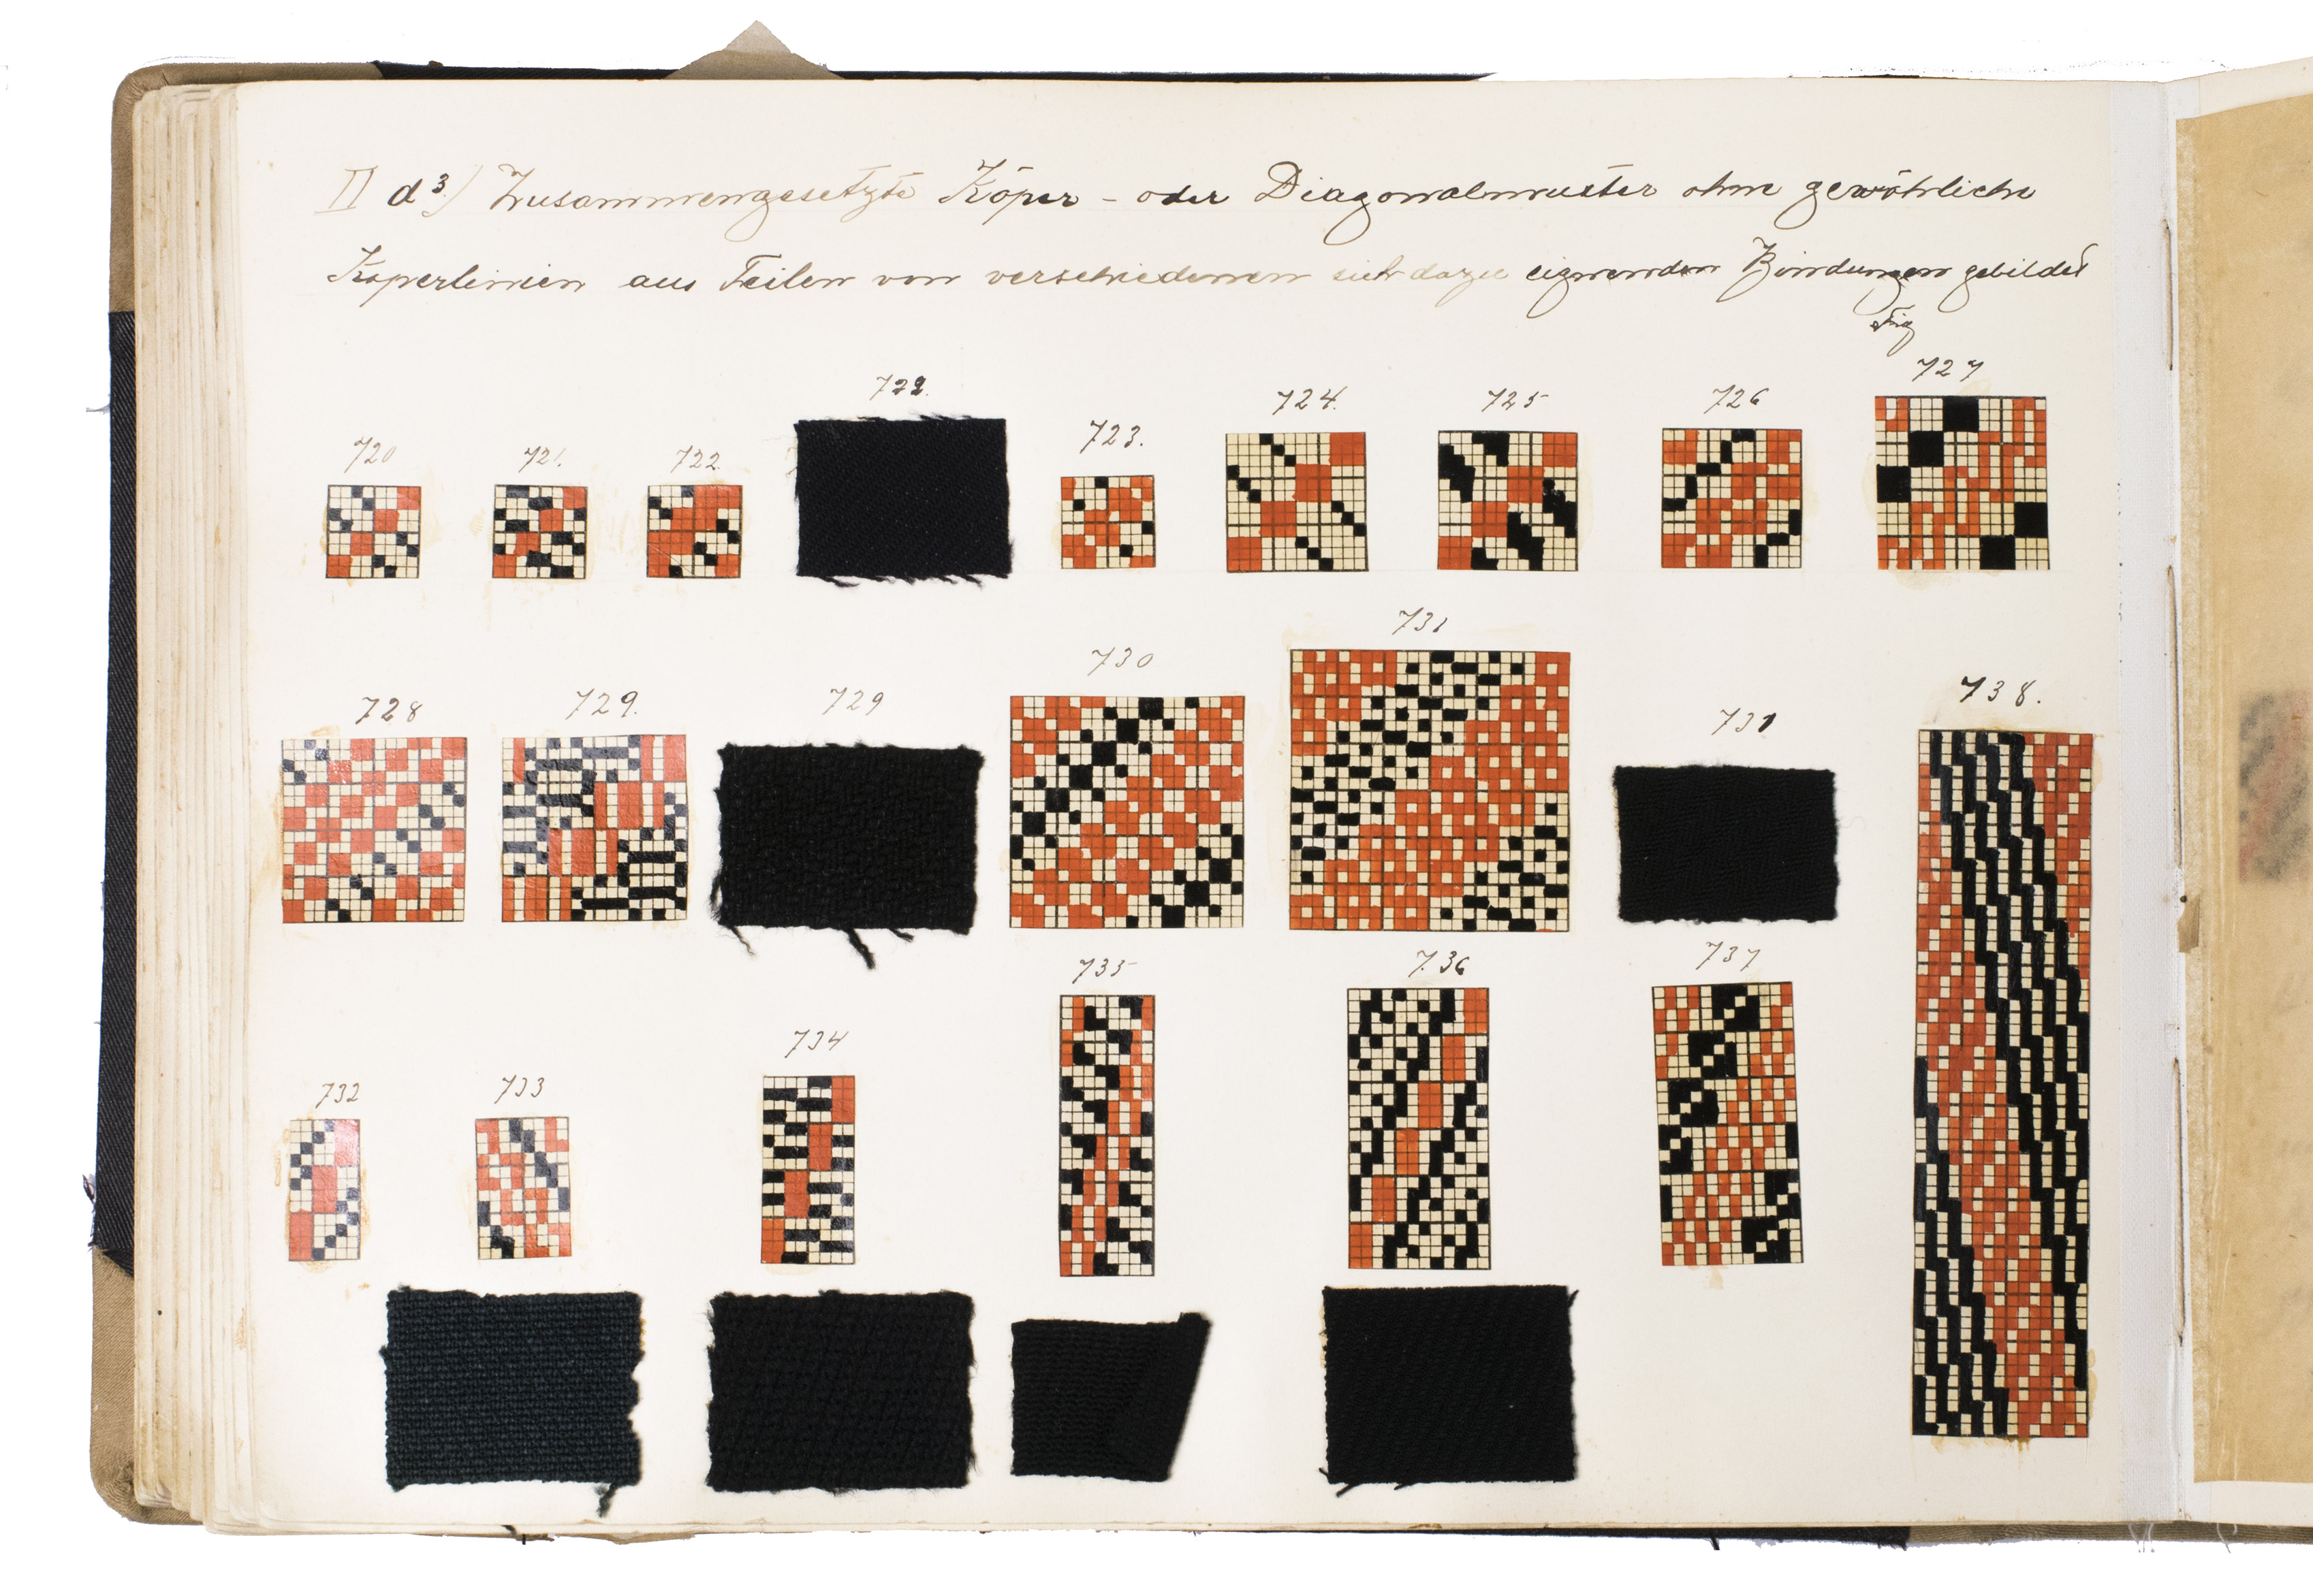 II d³) Zusammengesetzte Köper- oder Diagonalmuster ohne gewöhnliche
Köperlinien aus Teilen von verschiedenen sich dazu eignenden Bindungen gebildet
Fig
720 721. 722. 722. 723. 724. 725 726 727
728 729. 729 730 731 731 738.
732 733 734 735 736 737